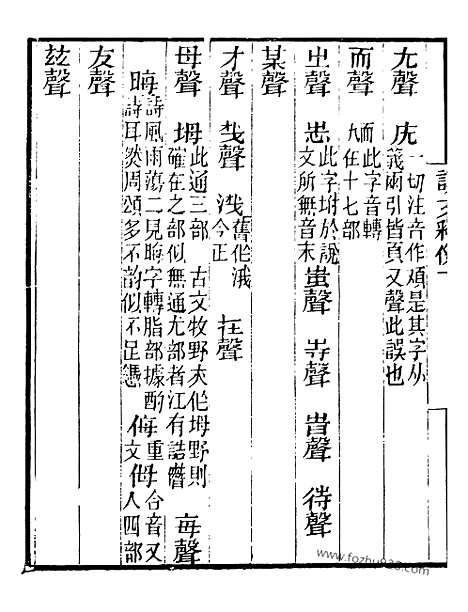 尢聲　㽻一切注音作頑是其字从
義兩引皆頁又聲此誤也
而聲　耏而此字音轉
在十七部
㞢聲　㞢此字坿於說
文所無音末
蚩聲　寺聲　旹聲　待聲
某聲
才聲　𢦏聲　浅舊作浅
今正
在聲
母聲　坶此通三部　古文牧野夾作坶野則
確在之部似無通尤部者江有誥䁂
每聲
晦詩風雨蕩二見晦字轉脂部據酌
詩耳然周頌多不韵似不足憑
侮每重母合音又
侮文㑄人四部
友聲
玆聲
www.fozhu920.com